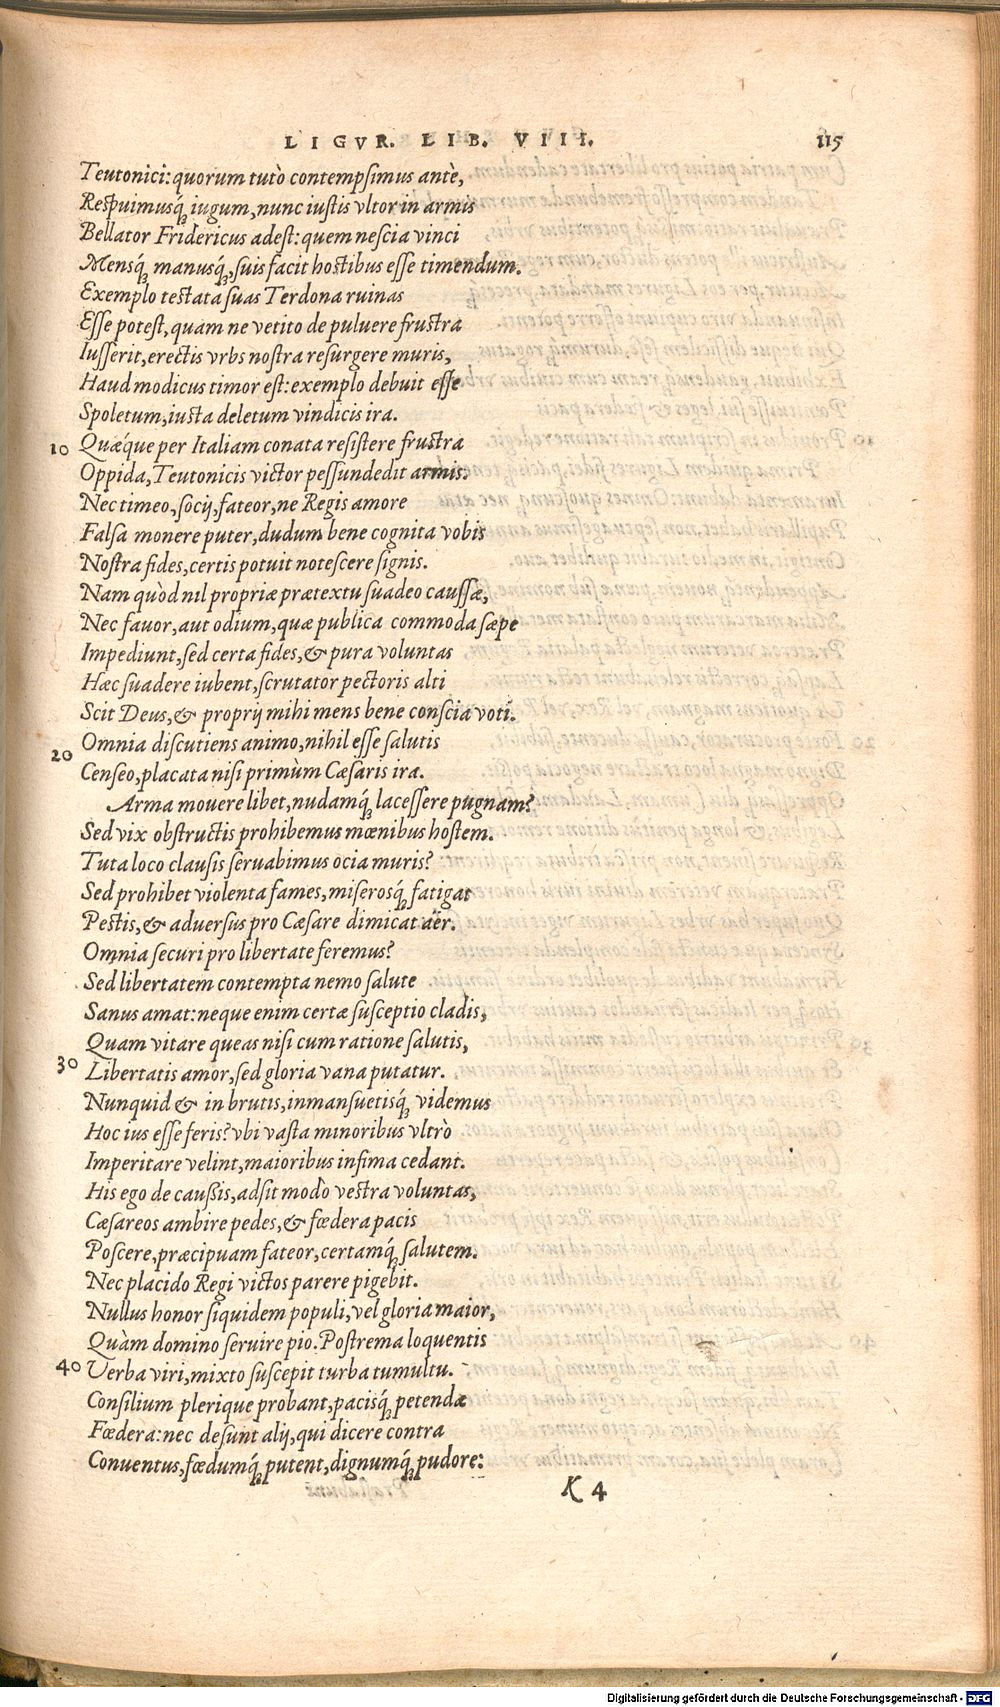 LIGVR. LIB. VIII. 115
Teutonici: quorum tutò contempsimus antè,
Respuimusq́; iugum, nunc iustis vltor in armis
Bellator Fridericus adest: quem nescia vinci
Mensq́; manusq́;, suis facit hostibus esse timendum.
Exemplo testata suas Terdona ruinas
Esse potest, quam ne vetito de puluere frustra
Iusserit, erectis vrbs nostra resurgere muris,
Haud modicus timor est: exemplo debuit esse
Spoletum, iusta deletum vindicis ira.
10 Quæque per Italiam conata resistere frustra
Oppida, Teutonicis victor pessundedit armis.
Nec timeo, socij, fateor, ne Regis amore
Falsa monere puter, dudum bene cognita vobis
Nostra fides, certis potuit notescere signis.
Nam quòd nil propriæ prætextu suadeo caussæ,
Nec fauor, aut odium, quæ publica commoda sæpe
Impediunt, sed certa fides, & pura voluntas
Hæc suadere iubent, scrutator pectoris alti
Scit Deus, & proprij mihi mens bene conscia voti.
20 Omnia discutiens animo, nihil esse salutis
Censeo, placata nisi primùm Cæsaris ira.
Arma mouere libet, nudamq́; lacessere pugnam?
Sed vix obstructis prohibemus mœnibus hostem.
Tuta loco clausis seruabimus ocia muris?
Sed prohibet violenta fames, miserosq́; fatigat
Pestis, & aduersus pro Cæsare dimicat aër.
Omnia securi pro libertate feremus?
Sed libertatem contempta nemo salute
Sanus amat: neque enim certæ susceptio cladis,
Quam vitare queas nisi cum ratione salutis,
30 Libertatis amor, sed gloria vana putatur.
Nunquid & in brutis, inmansuetisq́; videmus
Hoc ius esse feris? vbi vasta minoribus vltrò
Imperitare velint, maioribus infima cedant.
His ego de caussis, adsit modò vestra voluntas,
Cæsareos ambire pedes, & fœdera pacis
Poscere, præcipuam fateor, certamq́; salutem.
Nec placido Regi victos parere pigebit.
Nullus honor siquidem populi, vel gloria maior,
Quàm domino seruire pio. Postrema loquentis
40 Verba viri, mixto suscepit turba tumultu.
Consilium plerique probant, pacisq́; petendæ
Fœdera: nec desunt alij, qui dicere contra
Conuentus, fœdumq́; putent, dignumq́; pudore:
K 4
Digitalisierung gefördert durch die Deutsche Forschungsgemeinschaft - DFG